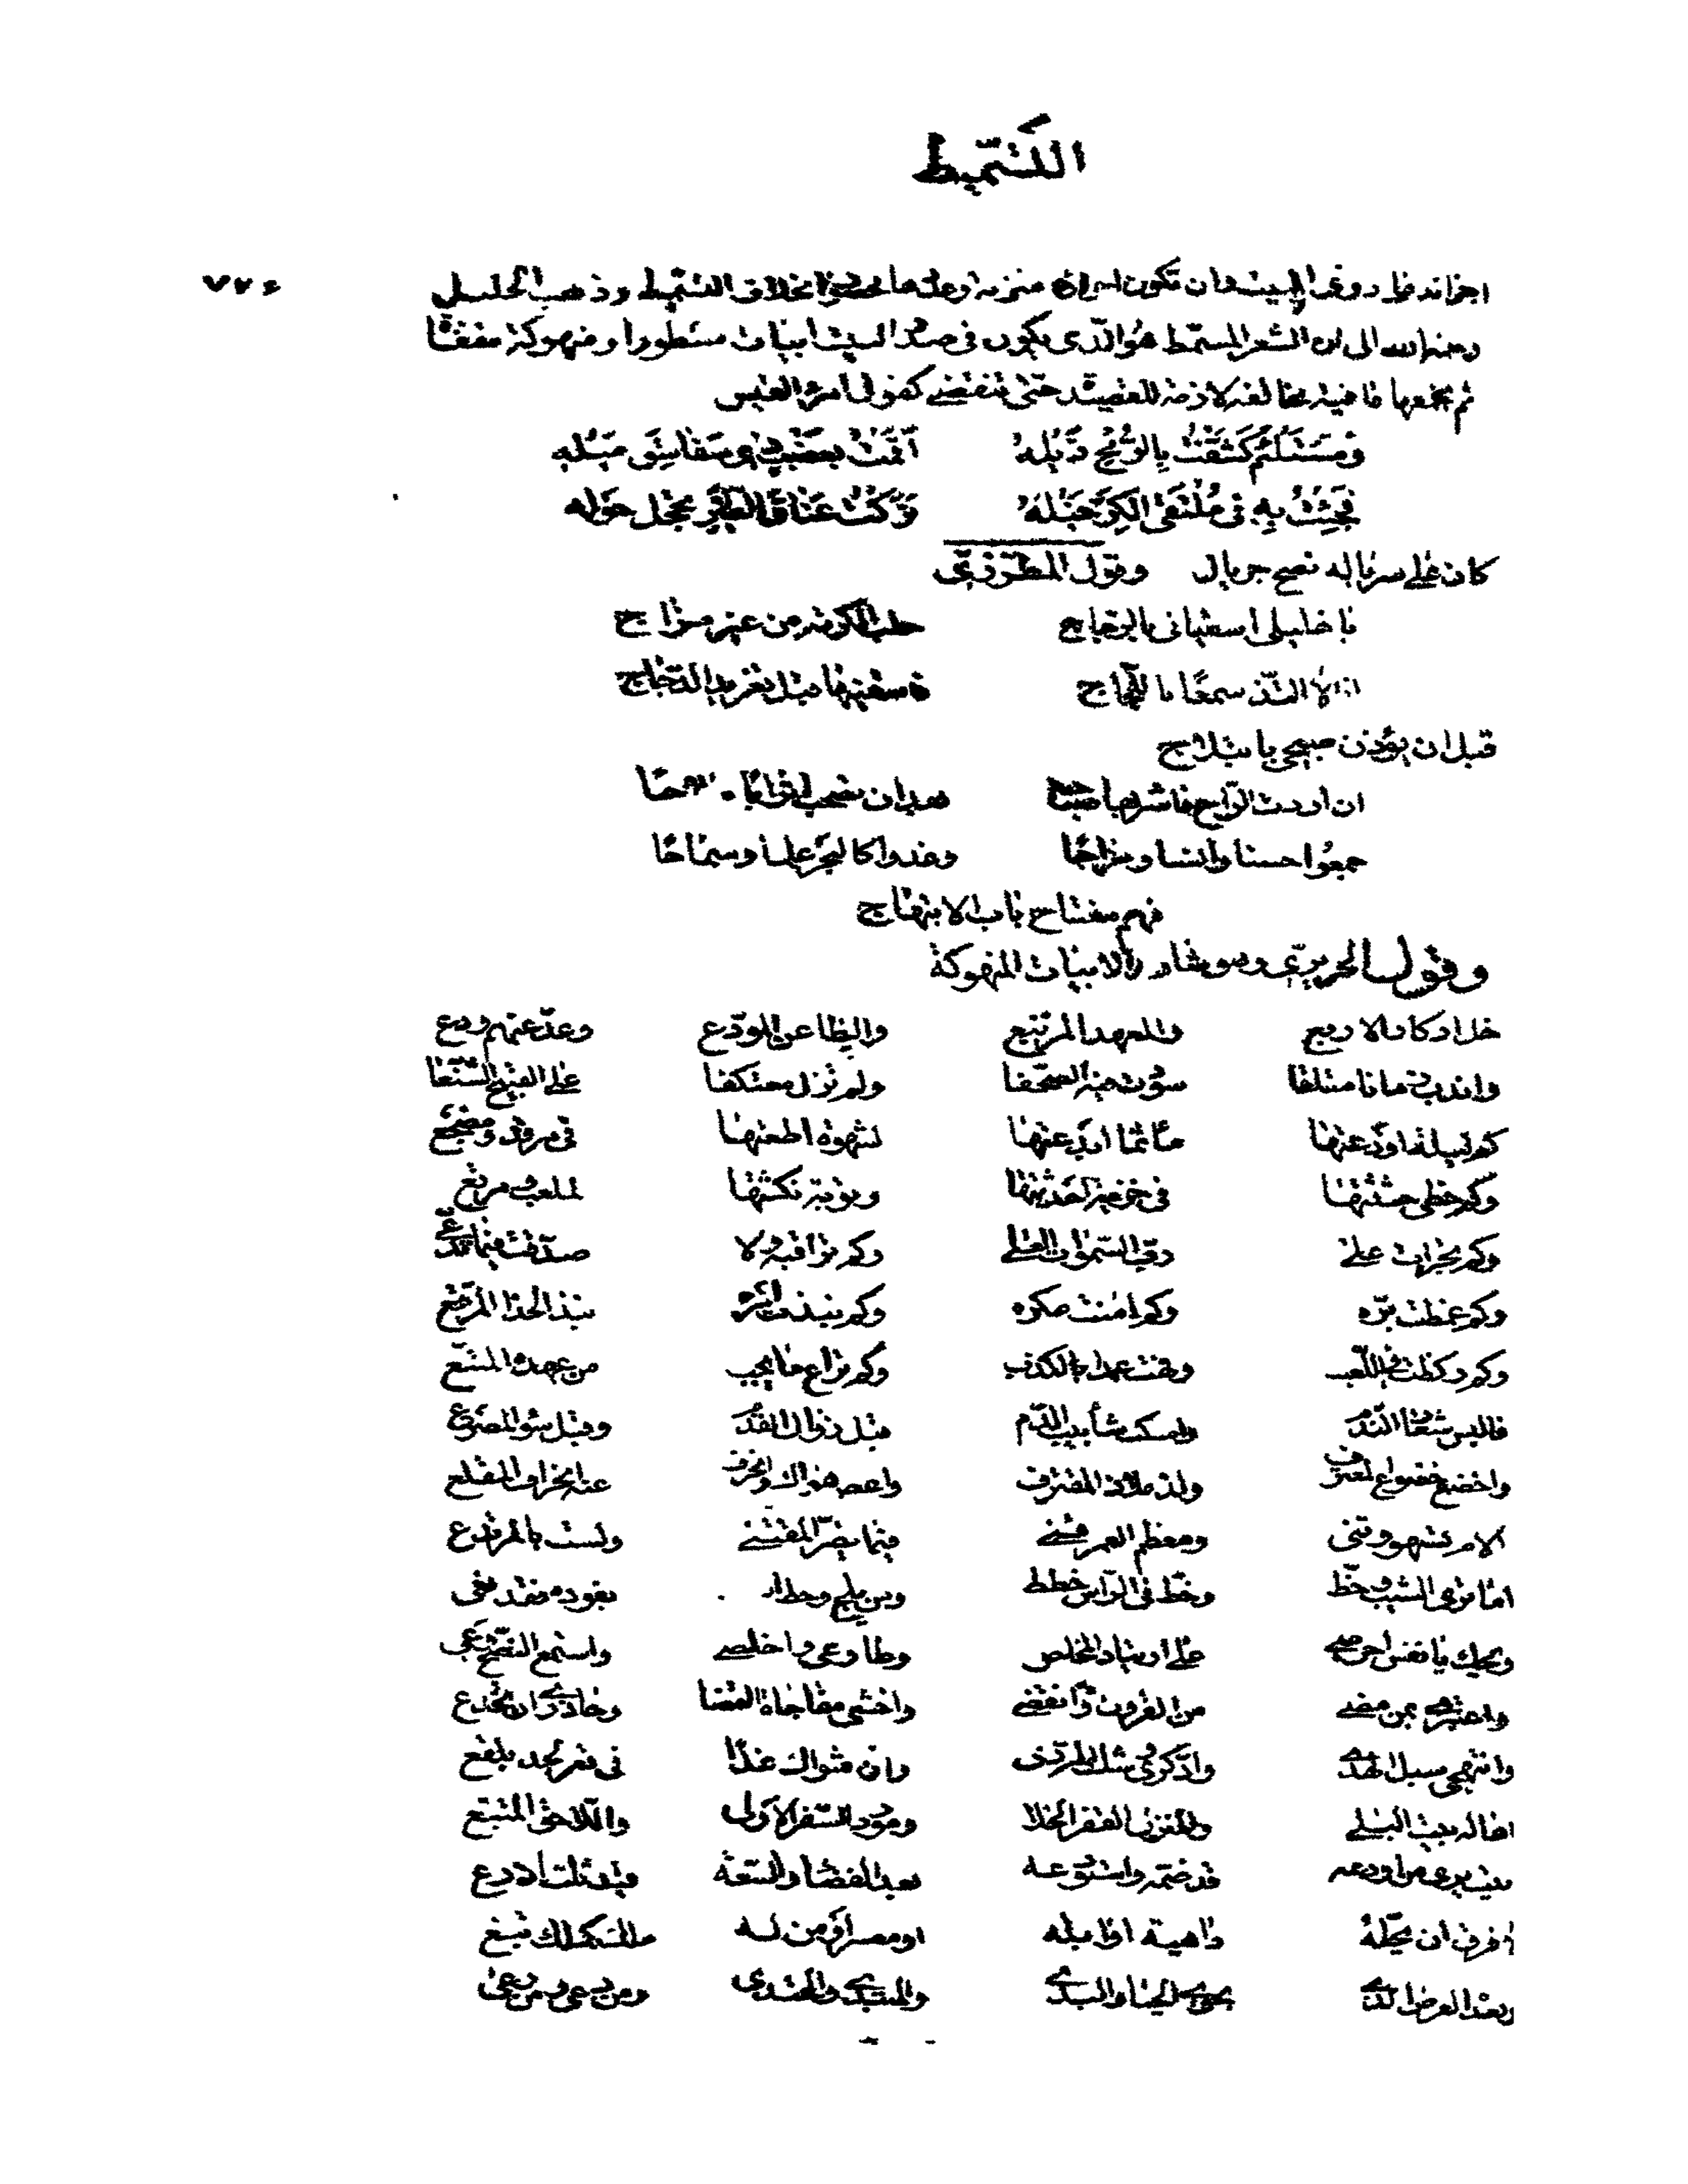 التسميط
رحمه الله الى ان الشعر المسمط هو الذى يكون فى صدر البيت ابيات مشطورة او منهوكة مقفاة
ثم يجمعها قافية مخالفة لازمة للقصيدة حتى تنقضى كقول امرئ القيس
ومستلئم كشفت بالرمح ذيله اقمت بعضب ذى سفاسق ميله
فجعت به فى ملتقى الكر خيله تركت عتاق الطير تحجل حوله
كان على سرباله نضح جريال وقول المطرزى
يا خليلى اسقيانى بالزجاج حلب الكرمة من غير مزاج
انا لا التذ سمعا باللجاج فاسقنيها قبل تغريد الدجاج
قبل ان يؤذن صبحى بانبلاج
ان اردت الراح فاشربها صباحا بعد ان تصحب اترابا
جمعوا حسنا وانسا ومزاحا وغدوا كالبحر علما وسماحا
فهم مفتاح باب الابتهاج
وقول الحريرى وهو مشاد بالابيات المنهوكة
خل ادكار الاربع والمعهد المرتبع والظاعن المودع وعد عنهم ودع
واندب زمانا سلفا سودت فيه الصحفا ولم تزل معتكفا على القبيح الشنعا
كم ليلة اودعتها مآثما ابدعتها لشهوة اطعتها فى مرقد ومضجع
وكم خطى حثثتها فى خزية احدثتها وتوبة نكثتها لملعب ومرتع
وكم تجرات على رب السموات العلى وكم تراقبه ولا صدقت فيما تدعى
وكم غمطت بره وكم امنت مكره وكم نبذت امره نبذ الحذا المرقع
وكم ركضت فى اللعب وفهت عمدا بالكذب وكم تراع ما يجب من عهده المتبع
فالبس شعار الندم واسكب شآبيب الدم قبل زوال القدم وقبل سوء المصرع
واخضع خضوع المعترف ولذ ملاذ المقترف واعص هواك وانحرف عنه انحراف المقلع
الام تسهو وتنى ومعظم العمر فنى فيما يضر المقتنى ولست بالمرتدع
اما ترى الشيب وخط وخط فى الراس خطط ومن يلح وخط بفوده فقد نعى
ويحك يا نفس احرصى على ارتياد المخلص وطاوعى واخلصى واستمع النصح وعى
واعتبرى بمن مضى من القرون وانقضى واخشى مفاجاة القضا وحاذرى ان تخدعى
وانتهجى سبل الهدى وادكرى وشك الردى وان مثواك غدا فى قعر لحد بلقع
اها له بيت البلى والمنزل القفر الخلا ومورد السفر الاولى واللاحق المتبع
بيت يرى من اودعه قد ضمه واستودعه بعد الفضاء والسعة قيد ثلاث اذرع
لا فرق ان يحله داهية او ابله او معسر او من له ملك كملك تبع
وبعده العرض الذى يحوى الحيى والبذى والمبتدى والمحتذى ومن رعى ومن رعى